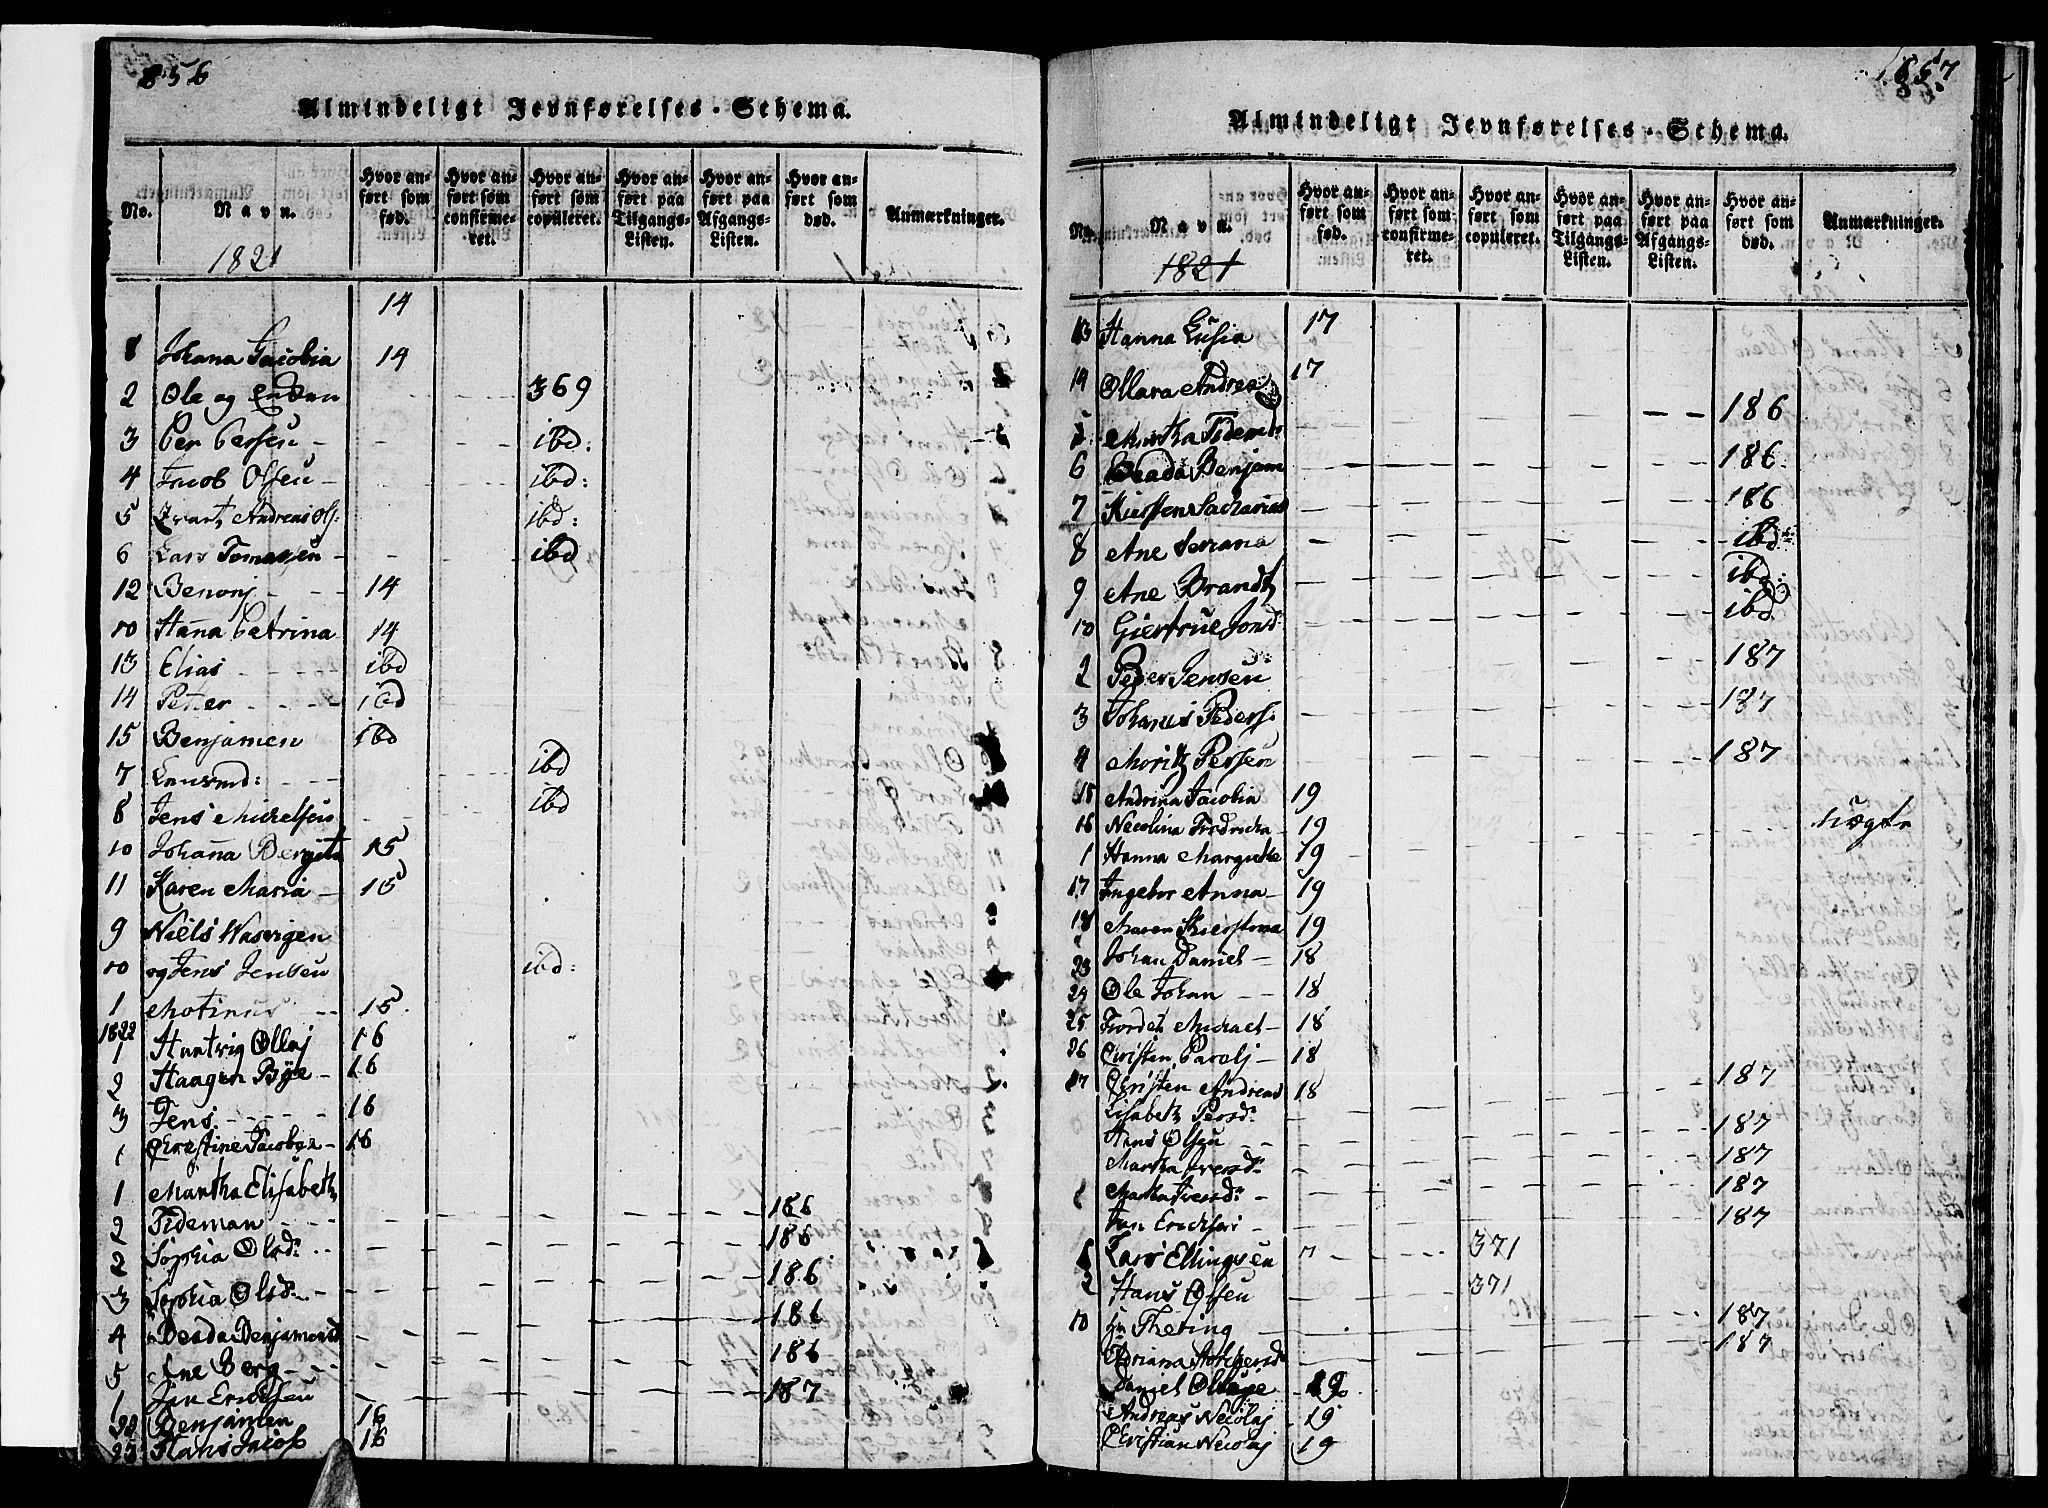 856
Almindeligt Jevnførelses-Schema.
No. Navn. Hvor anført som fød. Hvor anført som confirmeret. Hvor anført som copuleret. Hvor anført paa Tilgangs-Listen. Hvor anført paa Afgangs-Listen. Hvor anført som død. Anmærkninger.
1821
14
8 Johana Jacobia 14
2 Ole og 369
3 Per Persen - ibd:
4 Jacob Olsen - ibd:
5 Andreas Ols: ibd:
6 Lars Tomassen - ibd
12 Benonj 14
10 Hanna Petrina 14
13 Elias ibd
14 Petter ibd
15 Benjamen ibd
7 ibd
8 Jens Mickelsen ibd
10 Johanna Bergita 15
11 Karen Maria - 15
9 Niels
10 og Jens Jensen ibd:
1 Motinus 15
1822
1 Hartvig Ollaj 16
2 Haagen Bye - 16
3 Jens 16
1 Jacobea - 16
1 Martha Elisabeth
2 Tideman 186
2 Sophia Olsd: 186
3 Sophia Olsd: 186
4 Beada Benjamensd 186
5 Ane Berg 186
1 Jan Ericksen 187
22 Benjamen 16
23 Hans Jacob 16
857
Almindeligt Jevnførelses-Schema.
No. Navn. Hvor anført som fød. Hvor anført som confirmeret. Hvor anført som copuleret. Hvor anført paa Tilgangs-Listen. Hvor anført paa Afgangs-Listen. Hvor anført som død. Anmærkninger.
1821
13 Hanna Lusia 17
14 Ollara Andrea 17
5 Martha Tidemd: 186
6 Beada Benjam 186
7 Kiersten Sacharias 186
8 Ane ibd:
9 Ane Brandtz ibd:
10 Giertrue Jonsd: ibd
2 Peder Jensen 187
3 Johanes Peders: 187
4 Moritz Persen 187
15 Andrina Jacobia 19
16 Necolina Fredricka - 19
1 Hanna Margrethe 19
17 Ingebor Anna - 19
18 Maren Kierstina 19
23 Johan Daniel - 18
24 Ole Johan 18
25 Michael - 18
26 Cristen - 18
27 Christen Andreas 18
Lisabeth Persd: 187
Hans Olsen 187
Martha Iversd: 187
Martha Iversd: - 187
Jan Ericksen - 187
1 Lars Ellingsen 371
2 Hans Olsen 371
10 Hr Thering 187
187
Daniel 19
Andreas Necolaj 19
Christian Necolaj 19